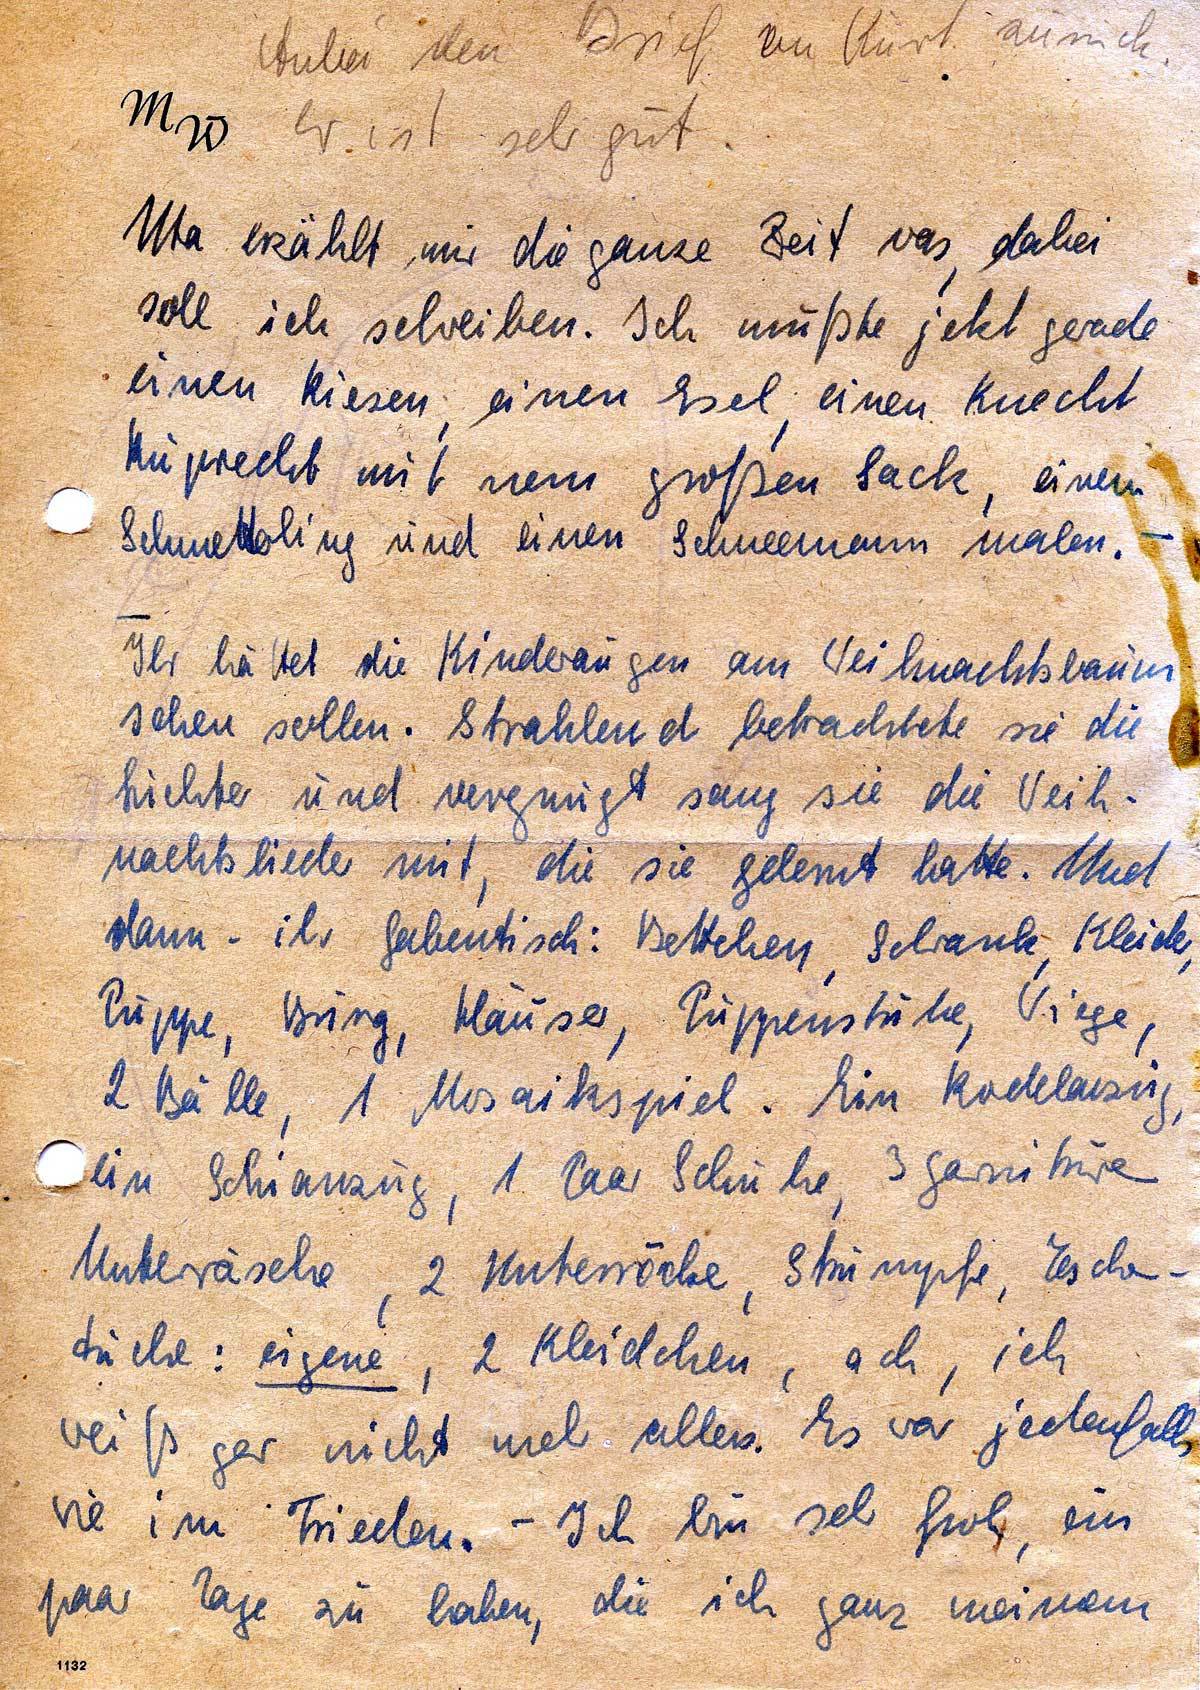 Anbei den Brief an Kurt zurück.
MW
Er ist sehr gut.
Uta erzählt mir die ganze Zeit was, dabei
soll ich schreiben. Ich mußte jetzt gerade
einen Riesen, einen Esel, einen Knecht
Ruprecht mit nem großen Sack, einen
Schmetterling und einen Schneemann malen. –
– Ihr hättet die Kinderaugen am Weihnachtsbaum
sehen sollen. Strahlend betrachtete sie die
Lichter und vergnügt sang sie die Weih-
nachtslieder mit, die sie gelernt hatte. Und
dann – ihr Gabentisch: Bettchen, Schrank, Kleider,
Puppe, Burg, Häuser, Puppenstube, Wiege,
2 Bälle, 1 Mosaikspiel. Ein Rodelanzug,
ein Schianzug, 1 Paar Schuhe, 3 Garnituren
Unterwäsche, 2 Unterröcke, Strümpfe, Taschen-
tücher: eigene, 2 Kleidchen, ach, ich
weiß gar nicht mehr alles. Es war jedenfalls
wie im Frieden. – Ich bin sehr froh, ein
paar Tage zu haben, die ich ganz meinem
1132